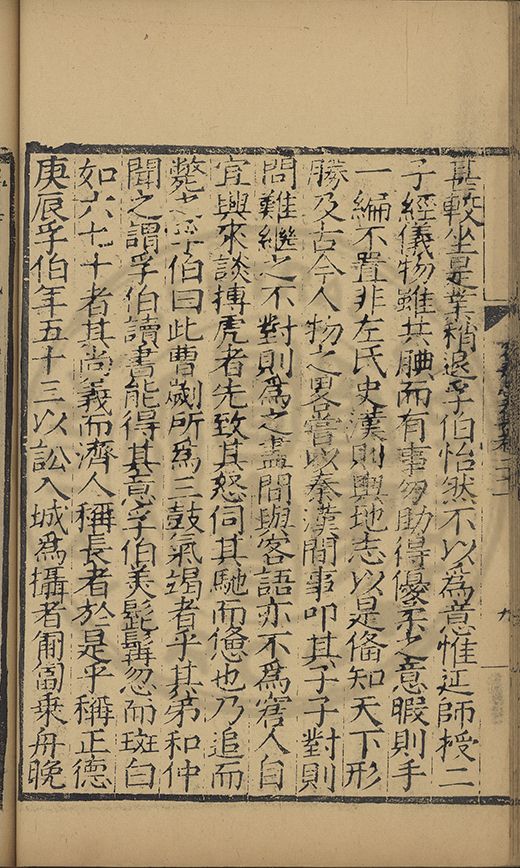 其較坐是業稍退孚伯怡然不以為意惟延師授二
子經儀物雖其腆而有事匆助得優柔之意暇則手
一編不置非左氏史漢則輿地志以是俻知天下形
勝及古今人物之畧嘗以秦漢間事叩其子子對則
問難繼之不對則為之盡間與客語亦不為窘人自
宜興來談搏虎者先致其怒伺其馳而憊也乃追而
斃之孚伯曰此曹歲所為三鼓氣竭者乎其弟和仲
聞之謂孚伯讀書能得其意孚伯美髭髯忽而斑白
如六七十者其尚義而濟人稱長者於是乎稱正德
庚辰孚伯年五十三以訟入城為攝者匍匐乗舟晚